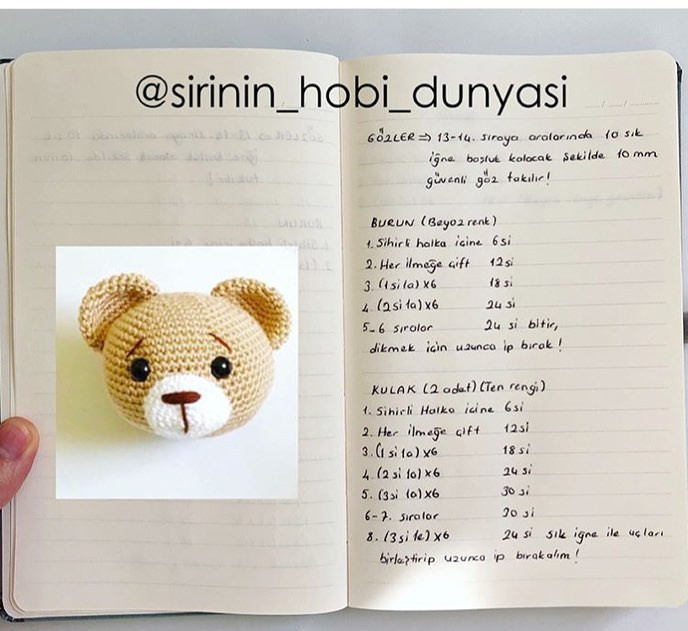 @sirinin_hobi_dunyasi
GÖZLER ⇒ 13-14. sıraya aralarında 10 sık
iğne boşluk kalacak şekilde 10 mm
güvenli göz takılır!
BURUN (Beyaz renk)
1. Sihirli halka içine 6si
2. Her ilmeğe çift 12si
3. (1si 1a) x6 18 si
4. (2si 1a) x6 24 si
5-6 sıralar 24 si bitir,
dikmek için uzunca ip bırak!
KULAK (2 adet) (Ten rengi)
1. Sihirli Halka içine 6si
2. Her ilmeğe çift 12si
3. (1 si 1a) x6 18 si
4. (2 si 1a) x6 24 si
5. (3si 1a) x6 30 si
6-7. sıralar 30 si
8. (3si 1e) x6 24 si sık iğne ile uçları
birleştirip uzunca ip bırakalım!